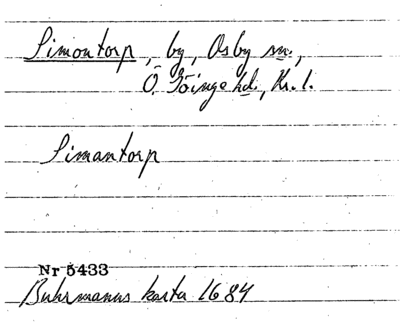 Simontorp, by, Osby sn.,
Ö. Göinge hd., Kr. l.
Simantorp
Nr 5433
Buhrmanns karta 1684